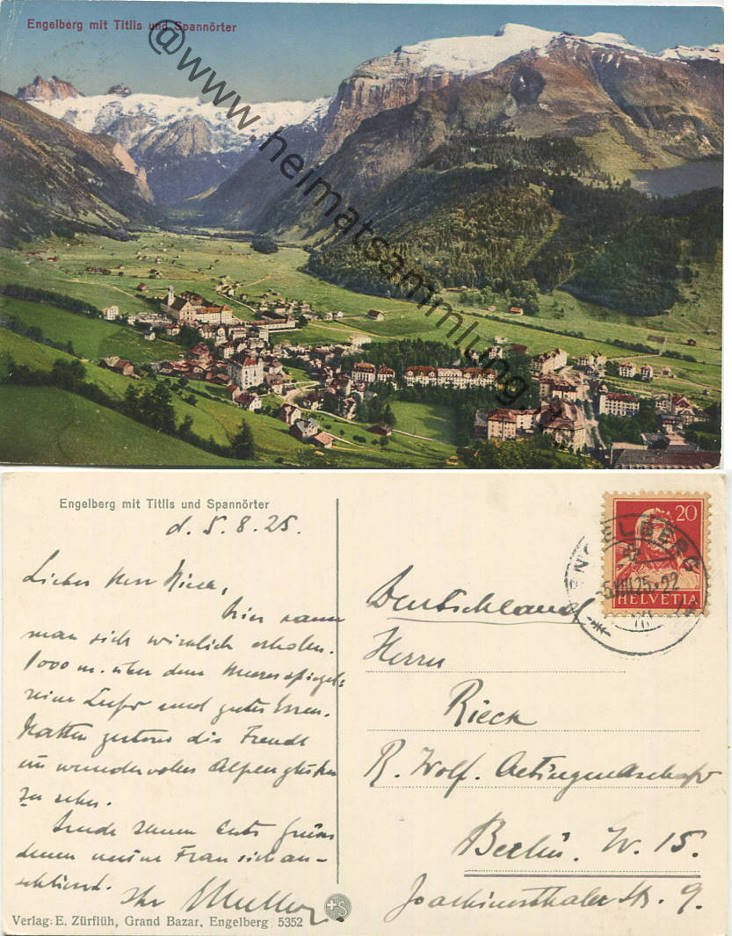 Engelberg mit Titlis und Spannörter
@www.heimatsammlung.de
Engelberg mit Titlis und Spannörter
d. 5. 8. 25.
Lieber Herr Rieck,
hier kann
man sich wirklich erholen.
1000 m. über dem Meeresspiegel,
reine Luft und gutes Essen.
Hatten gestern die Freude
ein wundervolles Alpenglühen
zu sehen.
Sende Ihnen beste Grüsse
denen meine Frau sich an-
schliesst.
Ihr Müller
Verlag: E. Zürflüh, Grand Bazar, Engelberg 5352
20
HELVETIA
ENGELBERG
5.VIII.25.22
Deutschland
Herrn
Rieck
R. Wolf. Actiengesellschaft
Berlin. W. 15.
Joachimsthaler Str. 9.